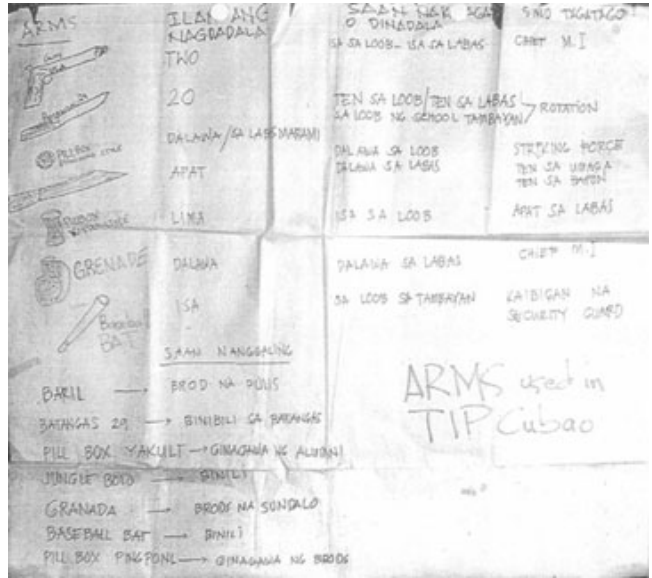 ARMS
ILAN ANG NAGDADALA
SAAN
O DINADALA
SINO TAGATAGO
GUN
TWO
ISA SA LOOB - ISA SA LABAS
CHIEF M.I
20
TEN SA LOOB / TEN SA LABAS
SA LOOB NG SCHOOL TAMBAYAN
ROTATION
PILLBOX
DALAWA / SA LABAS MARAMI
DALAWA SA LOOB
DALAWA SA LABAS
STRIKING FORCE
TEN SA UMAGA
TEN SA HAPON
APAT
PILLBOX
LIMA
ISA SA LOOB
APAT SA LABAS
GRENADE
DALAWA
DALAWA SA LABAS
CHIEF M.I
Baseball
BAT
ISA
SA LOOB SA TAMBAYAN
KAIBIGAN NA
SECURITY GUARD
SAAN NANGGALING
BARIL → BROD NA PULIS
BATANGAS 29 → BINIBILI SA BATANGAS
PILL BOX YAKULT → GINAGAWA NG ALUMNI
JUNGLE BOLO → BINILI
GRANADA → BRODS NA SUNDALO
BASEBALL BAT → BINILI
PILL BOX PINGPONG → GINAGAWA NG BRODS
ARMS used in
TIP Cubao